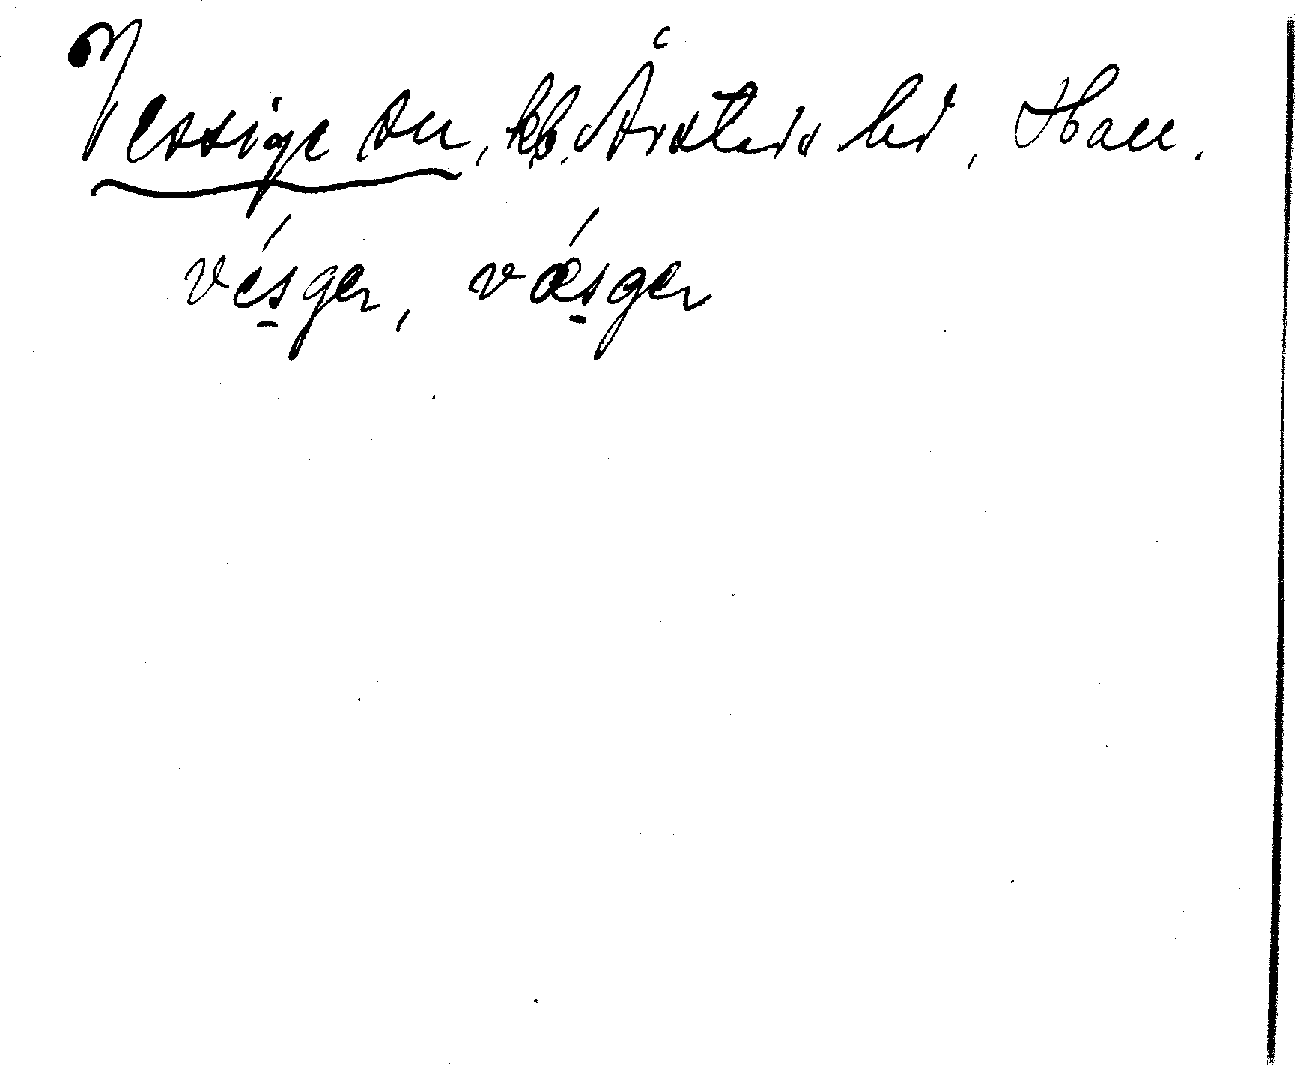 Vessige sn, kb. Årstads hd, Hall.
vés̱ger, vǽs̱ger